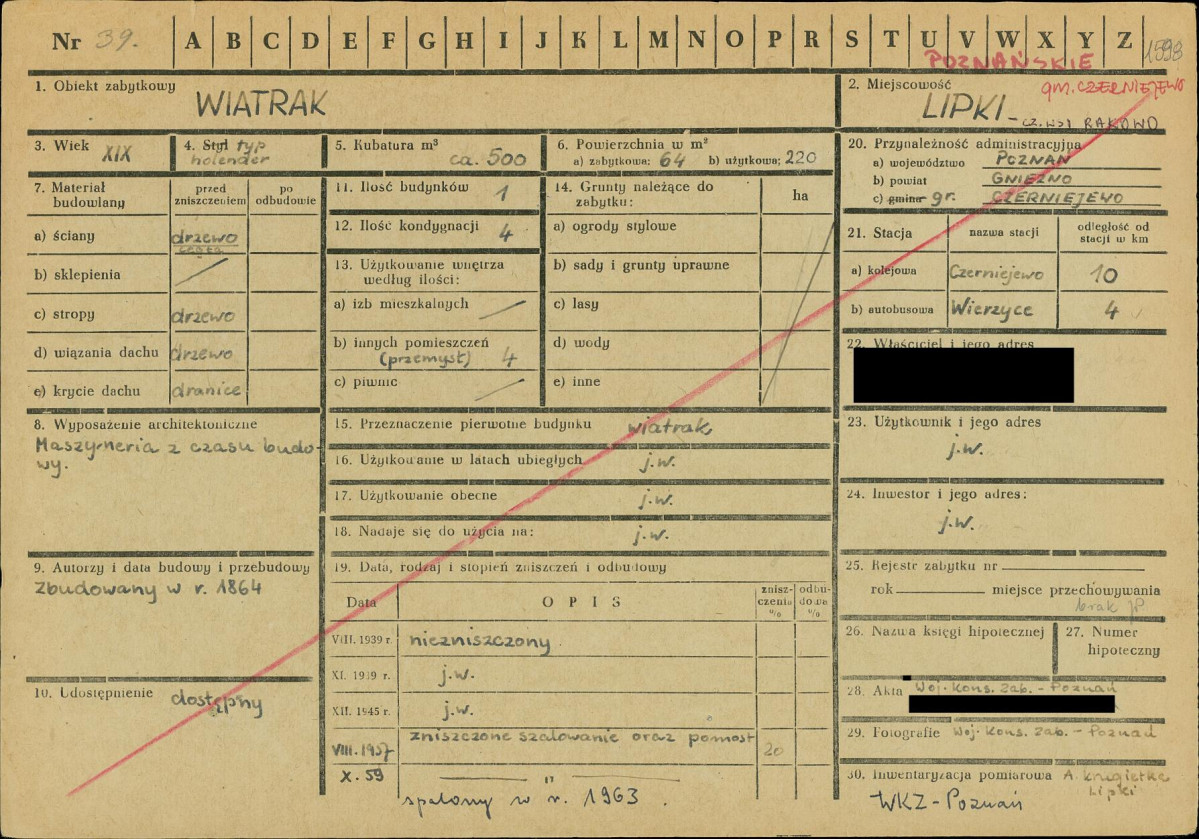 Nr 39. A B C D E F G H I J K L M N O P R S T U V W X Y Z 1593
POZNAŃSKIE
1. Obiekt zabytkowy
WIATRAK
2. Miejscowość gm. CZERNIEJEWO
LIPKI - cz. wsi RAKOWO
3. Wiek XIX
4. Styl typ
holender
5. Kubatura m³
ca. 500
6. Powierzchnia w m²
a) zabytkowa: 64 b) użytkowa: 220
7. Materiał budowlany
przed zniszczeniem
po odbudowie
a) ściany drzewo
b) sklepienia
c) stropy drzewo
d) wiązania dachu drzewo
e) krycie dachu dranice
8. Wyposażenie architektoniczne
Maszyneria z czasu budo-
wy.
9. Autorzy i data budowy i przebudowy
Zbudowany w r. 1864
10. Udostępnienie dostępny
11. Ilość budynków 1
12. Ilość kondygnacji 4
13. Użytkowanie wnętrza
według ilości:
a) izb mieszkalnych
b) innych pomieszczeń
(przemysł) 4
c) piwnic
14. Grunty należące do
zabytku: ha
a) ogrody stylowe
b) sady i grunty uprawne
c) lasy
d) wody
e) inne
15. Przeznaczenie pierwotne budynku wiatrak
16. Użytkowanie w latach ubiegłych j.w.
17. Użytkowanie obecne j.w.
18. Nadaje się do użycia na: j.w.
19. Data, rodzaj i stopień zniszczeń i odbudowy
Data
OPIS
znisz-
czenia
%
odbu-
dowa
%
VIII. 1939 r. niezniszczony
XI. 1939 r. j.w.
XII. 1945 r. j.w.
VIII. 1957 zniszczone szalowanie oraz pomost 20
X. 59 — " —
spalony w r. 1963.
20. Przynależność administracyjna
a) województwo POZNAŃ
b) powiat GNIEZNO
c) gmina gr. CZERNIEJEWO
21. Stacja
nazwa stacji
odległość od
stacji w km
a) kolejowa Czerniejewo 10
b) autobusowa Wierzyce 4
22. Właściciel i jego adres
23. Użytkownik i jego adres
j.w.
24. Inwestor i jego adres:
j.w.
25. Rejestr zabytku nr
rok miejsce przechowywania
brak
26. Nazwa księgi hipotecznej
27. Numer
hipoteczny
28. Akta Woj. Kons. Zab. - Poznań
29. Fotografie Woj. Kons. Zab. - Poznań
30. Inwentaryzacja pomiarowa A.
Lipki
WKZ - Poznań